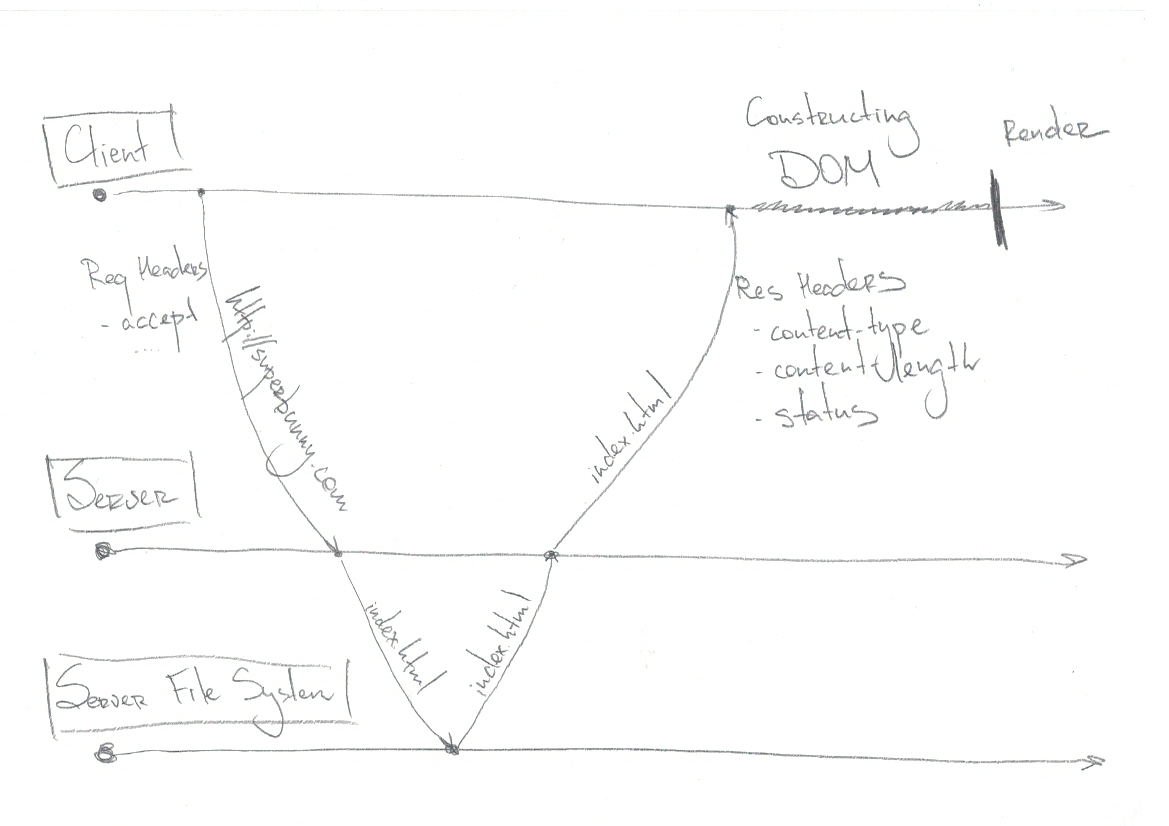 Client
Constructing
DOM
Render
Req Headers
- accept
....
http://superbunny.com
index.html
Res Headers
- content-type
- content-length
- status
Server
index.html
index.html
Server File System